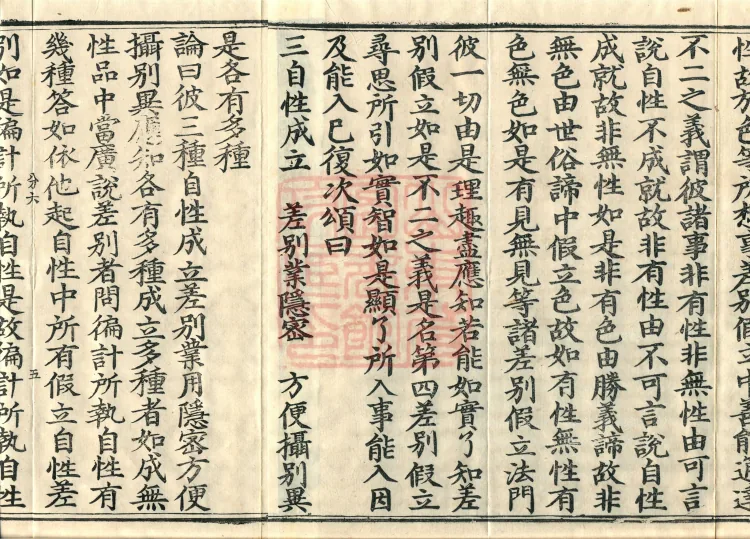 不二之義謂彼諸事非有性非無性由可言
說自性不成就故非有性由不可言說自性
成就故非無性如是非有色由勝義諦故非
無色由世俗諦中假立色故如有性無性有
色無色如是有見無見等諸差別假立法門
彼一切由是理趣盡應知若能如實了知差
別假立如是不二之義是名第四差別假立
尋思所引如實智如是顯了所入事能入因
及能入已復次頌曰
三自性成立 差別業隱密 方便攝別異
是各有多種
論曰彼三種自性成立差別業用隱密方便
攝別異應知各有多種成立多種者如成無
性品中當廣說差別者問徧計所執自性有
幾種答如依他起自性中所有假立自性差
分六 五
別如是徧計所執自性是故徧計所執自性